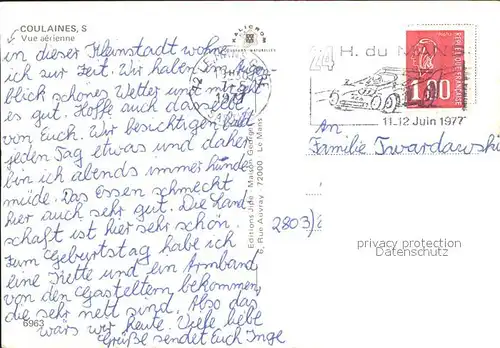 COULAINES, S
Vue aérienne
in dieser Kleinstadt wohne
ich zur Zeit. Wir haben im Augen-
blick schönes Wetter und mir geht
es gut. Hoffe auch dasselbe
von Euch. Wir besichtigen halt
jeden Tag etwas und daher
bin ich abends immer hunde
müde. Das Essen schmeckt
hier auch sehr gut. Die Land
schaft ist hier sehr schön.
Zum Geburtstag habe ich
eine Kette und ein Armband
von den Gasteltern bekommen,
die sehr nett sind. Also das
wärs wir heute. Viele liebe
Grüße sendet Euch Inge
6963
KALICROM
Editions
Maison George
6, Rue Auvray 72000 Le Mans
24 H. du MANS
11-12 Juin 1977
1.00
REPUBLIQUE FRANÇAISE
An
Familie Twardawski
2803)
privacy protection
Datenschutz